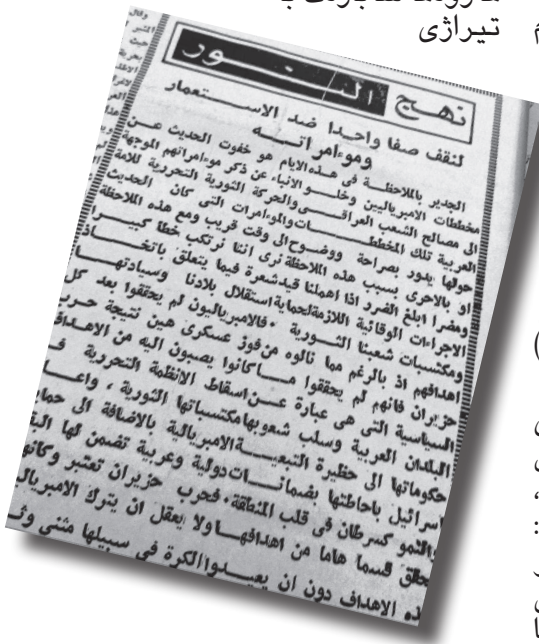 تیراژی
نهج النور
لنقف صفا واحدا ضد الاستعمار
ومو•امراته
الجدير بالملاحظة في هذه الايام هو خفوت الحديث عن
مخططات الامبرياليين وخلو الانباء عن ذكر مو•امراتهم الموجهة
الى مصالح الشعب العراقي والحركة الثورية التحررية للامة
العربية تلك المخططات والمو•امرات التي كان الحديث
حولها يدور بصراحة ووضوح الى وقت قريب ومع هذه الملاحظة
او بالاحرى بسبب هذه الملاحظة نرى اننا نرتكب خطا كبيرا
ومضرا ابلغ الضرر اذا اهملنا قيد شعرة فيما يتعلق باتخاذ
الاجراءات الوقائية اللازمة لحماية استقلال بلادنا وسيادتها
ومكتسبات شعبنا الثورية • فالامبرياليون لم يحققوا بعد كل
اهدافهم اذ بالرغم مما نالوه من فوز عسكرى هين نتيجة حرب
حزيران فانهم لم يحققوا ما كانوا يصبون اليه من الاهداف
السياسية التي هي عبارة عن اسقاط الانظمة التحررية في
البلدان العربية وسلب شعوبها مكتسباتها الثورية ، واعا
حكوماتها الى حظيرة التبعية الامبريالية بالاضافة الى حما
اسرائيل باحاطتها بضمانات دولية وعربية تضمن لها البقا
والنمو كسرطان في قلب المنطقة • فحرب حزيران تعتبر وكانه
تحقق قسما هاما من اهدافها ولا يعقل ان يترك الامبريال
ذه الاهداف دون ان يعيدوا الكرة في سبيلها مثنى وث